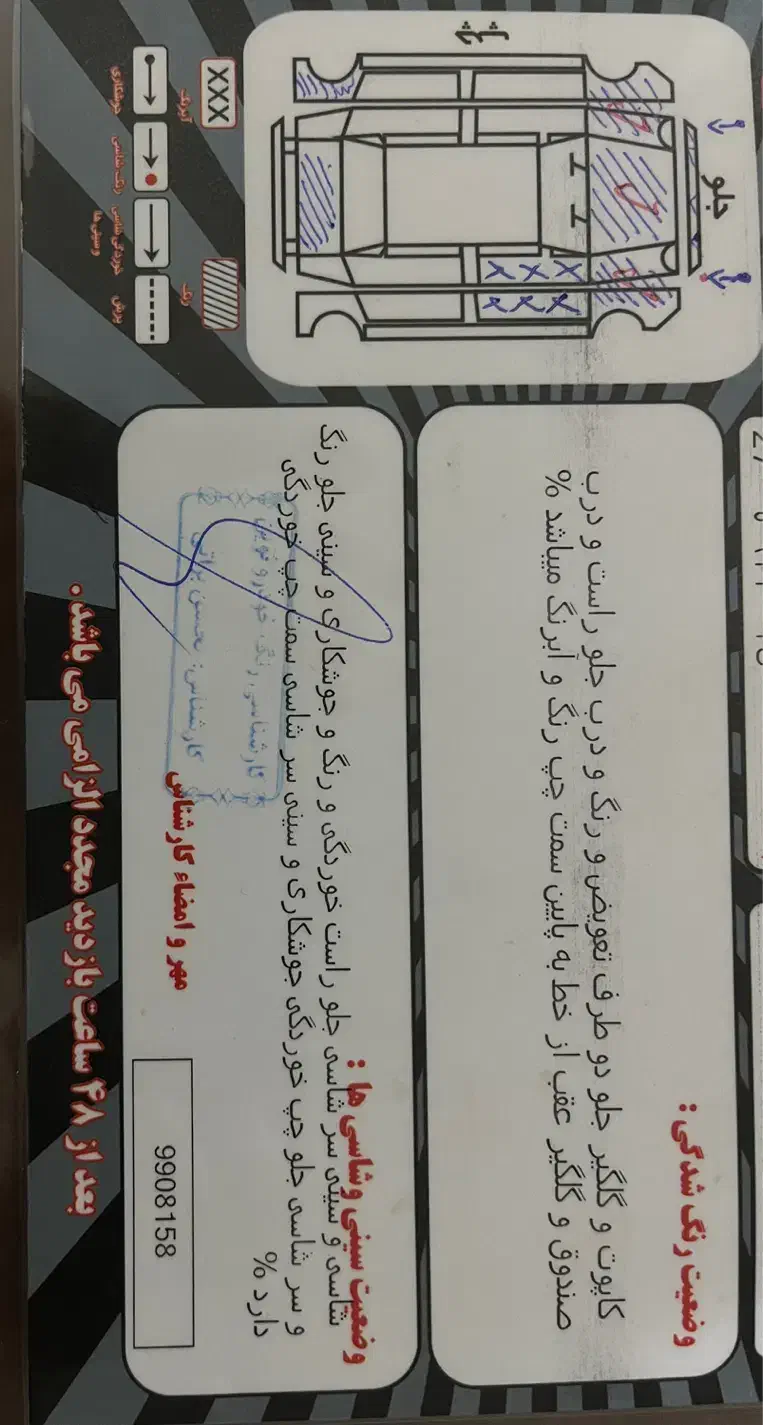 جلو
آبرنگ
XXX
رنگ
جوشکاری
رنگ شاسی
خوردگی شاسی
و سینی ها
برش
وضعیت رنگ شدگی :
کاپوت و گلگیر جلو دو طرف تعویض و رنگ و درب جلو راست و درب
صندوق و گلگیر عقب از خط به پایین سمت چپ رنگ و آبرنگ میباشد %
وضعیت سینی وشاسی ها :
شاسی و سینی سر شاسی جلو راست خوردگی و رنگ و جوشکاری و سینی جلو رنگ
و سر شاسی جلو چپ خوردگی جوشکاری و سینی سر شاسی سمت چپ خوردگی
دارد %
کارشناسی رنگ خودرو نوین
کارشناس: محسن براتی
مهر و امضاء کارشناس
9908158
بعد از ۴۸ ساعت بازدید مجدد الزامی می باشد .